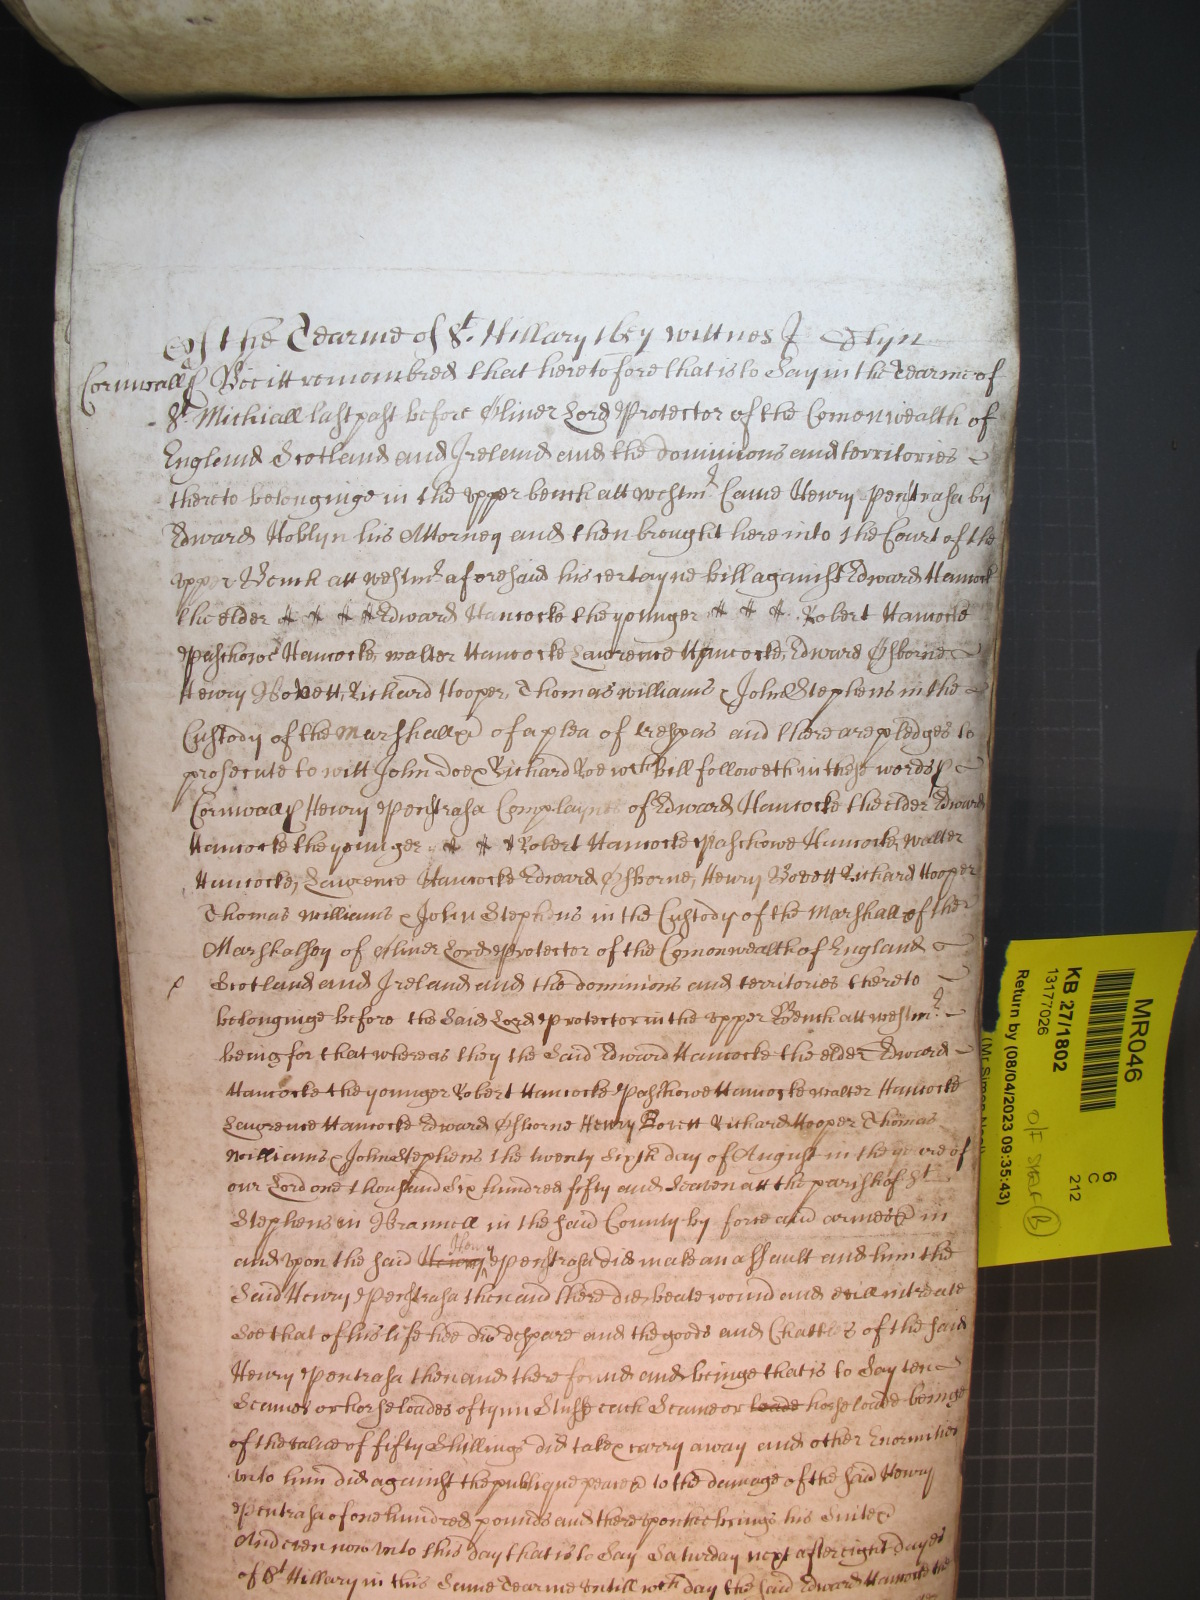 Of the Tearme of St. Hillary 1657 wittnes J Glyn
Cornwall ss Bee itt remembred that heretofore that is to Say in the Tearme of
St Michiall last past before Oliver Lord Protector of the Comonwealth of
England Scotland and Ireland and the dominions and territories
thereto belonginge in the upper bench att westmr Came Henry Pentrasa by
Edward Hoblyn his Attorney and then brought here into the Court of the
upper Bench att westmr aforesaid his certayne bill against Edward Hancock
the elder Edward Hancocke the younger Robert Hancocke
Paschowe Hancocke, walter Hancocke Lawrence Hancocke, Edward Osborne
Henry Bovett, Richard Hooper, Thomas williams & John Stephens in the
Custody of the Marshall &c of a plea of trespas and there are pledges to
prosecute to witt John doe & Richard Roe wch Bill followeth in these words ss
Cornwall ss Henry Pentrasa Complaynes of Edward Hancocke the elder Edward
Hancocke the younger Robert Hancocke Paschowe Hancocke, walter
Hancocke, Lawrence Hancocke Edward Osborne, Henry Bovett Richard Hooper
Thomas williams & John Stephens in the Custody of the Marshall of the
Marshalsey of Oliver Lord Protector of the Comonwealth of England
Scotland and Ireland and the dominions and territories thereto
belonginge before the Said Lord Protector in the upper Bench att westmr
being for that whereas they the Said Edward Hancocke the elder Edward
Hancocke the younger Robert Hancocke Paschowe Hancocke walter Hancocke
Lawrence Hancocke Edward Osborne Henry Bovett Richard Hooper Thomas
williams & John Stephens the twenty Sixth day of August in the yeare of
our Lord one thousand Six hundred fifty and Seaven att the parish of St
Stephens in Brannell in the said County by force and armes &c in
and upon the said Henry Pentrasa did make an assault and him the
Said Henry Pentrasa then and there did beate wound and evill intreate
Soe that of his life hee did dispare and the goods and Chattles of the said
Henry Pentrasa then and there found and beinge that is to Say ten
Seames or horse loades of tynn Stuffe each Seame or loade horse loade beinge
of the value of fifty Shillings did take & carry away and other Enormities
unto him did against the publique peace &c to the damage of the said Henry
Pentrasa of one hundred pounds and thereupon hee brings his Suite &c
And even now unto this day that is to Say Saturday next after eight dayes
of St Hillary in this Same Tearme untill wch day the said Edward Hancocke the
MR046
KB 27/1802
13177026
Return by (08/04/2023 09:35:43)
6
C
212
O/F SHELF (B)